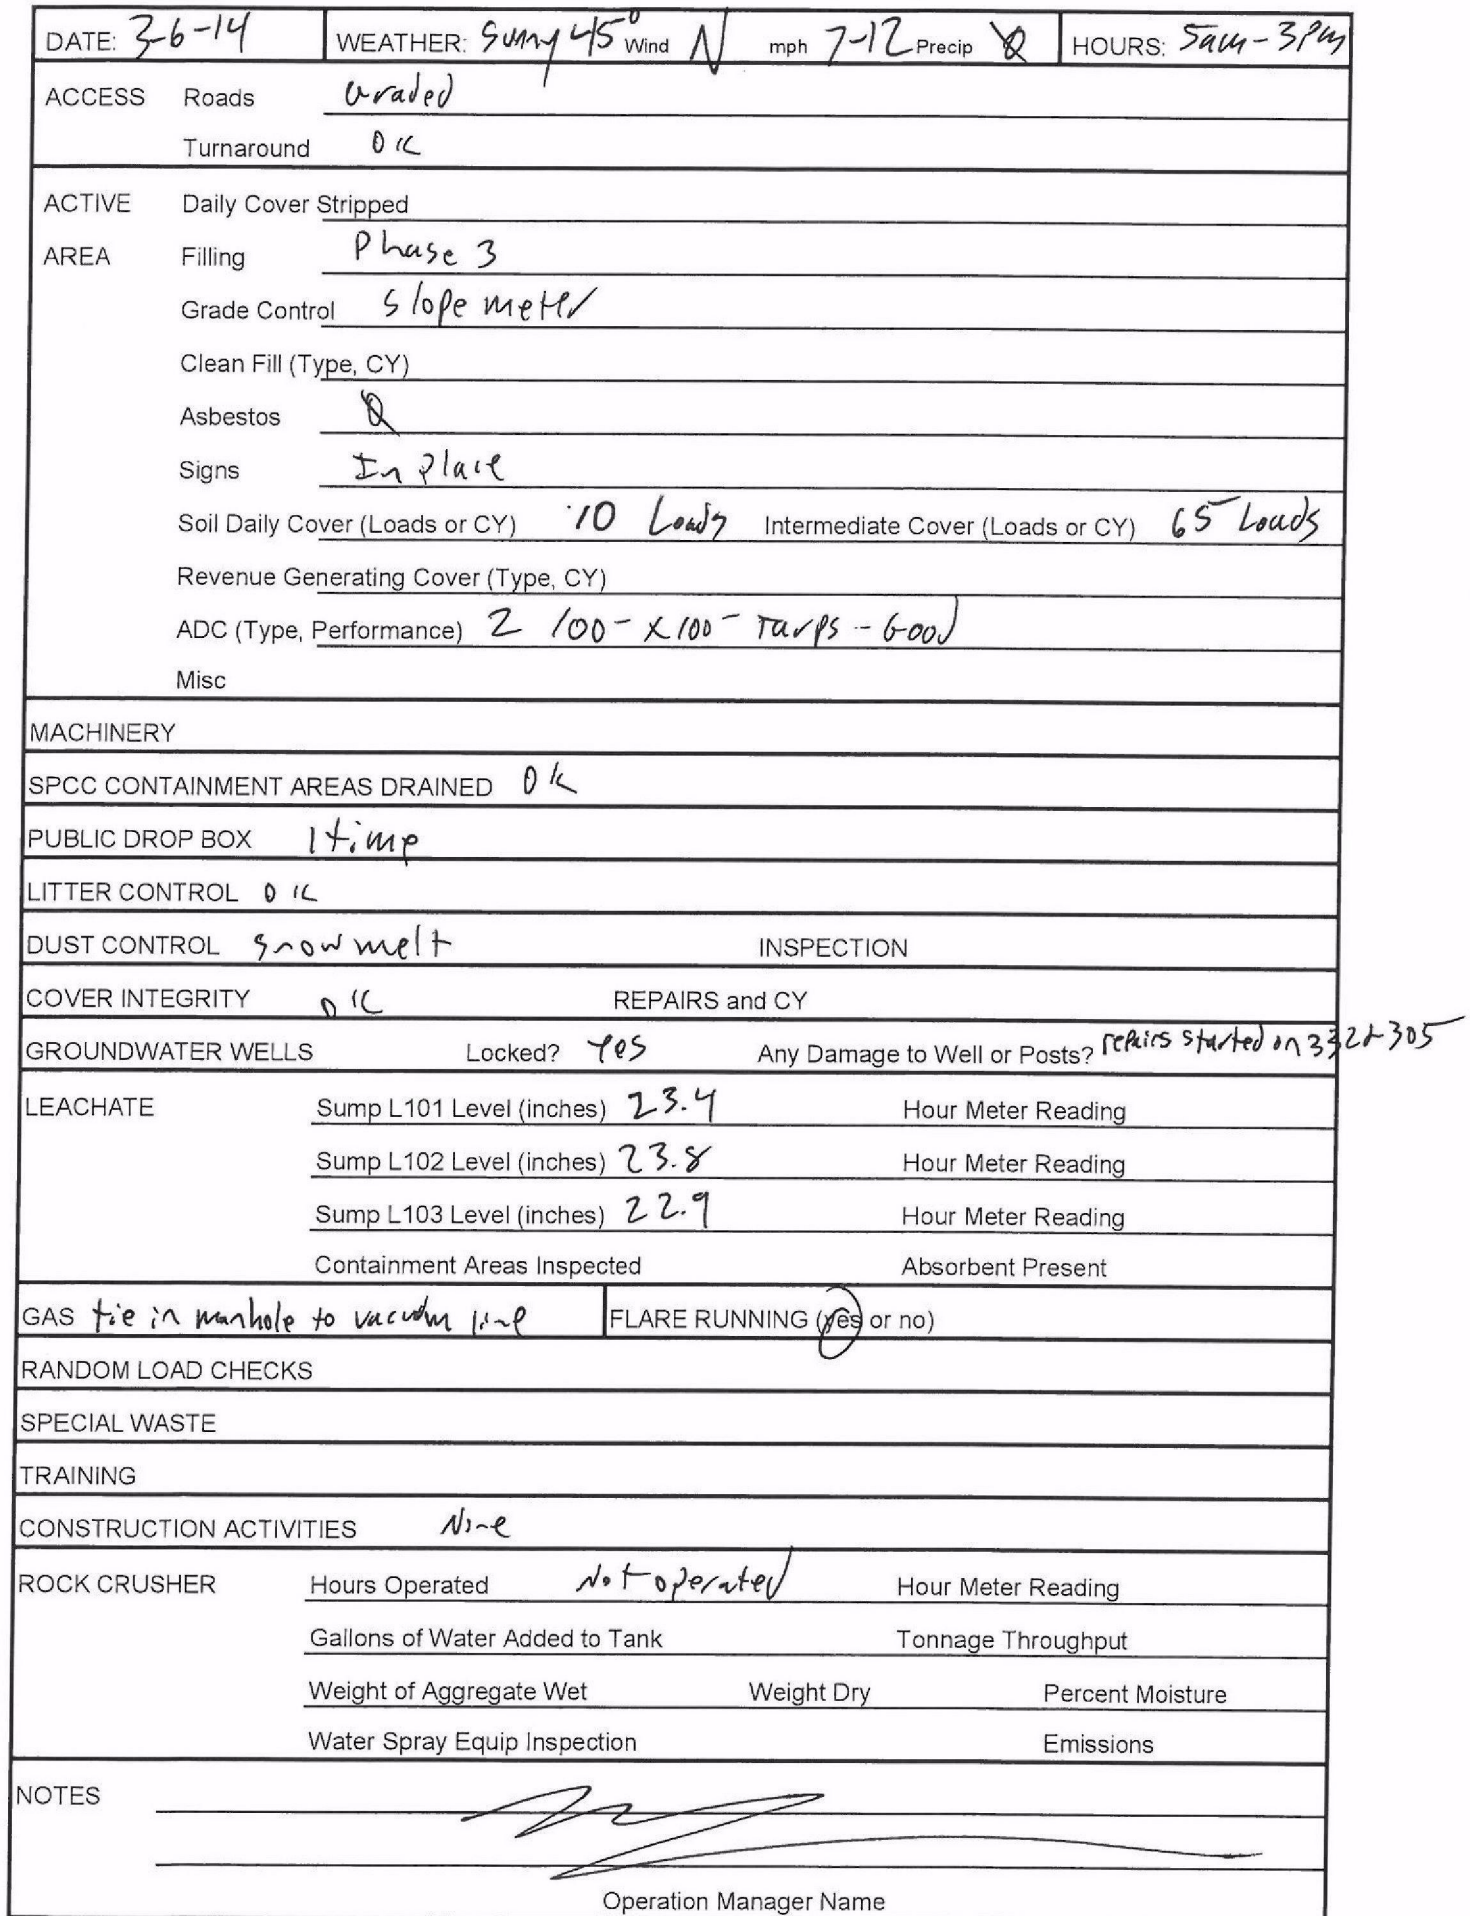 DATE: 3-6-14 WEATHER: Sunny 45° Wind N mph 7-12 Precip Ø HOURS: 5am-3pm
ACCESS Roads Graded
Turnaround OK
ACTIVE Daily Cover Stripped
AREA Filling Phase 3
Grade Control Slope meter
Clean Fill (Type, CY)
Asbestos Ø
Signs In Place
Soil Daily Cover (Loads or CY) 10 Loads Intermediate Cover (Loads or CY) 65 Loads
Revenue Generating Cover (Type, CY)
ADC (Type, Performance) 2 100- x 100- Tarps - Good
Misc
MACHINERY
SPCC CONTAINMENT AREAS DRAINED OK
PUBLIC DROP BOX 1 time
LITTER CONTROL OK
DUST CONTROL Snow melt INSPECTION
COVER INTEGRITY OK REPAIRS and CY
GROUNDWATER WELLS Locked? Yes Any Damage to Well or Posts? repairs started on 332 & 305
LEACHATE Sump L101 Level (inches) 23.4 Hour Meter Reading
Sump L102 Level (inches) 23.8 Hour Meter Reading
Sump L103 Level (inches) 22.9 Hour Meter Reading
Containment Areas Inspected Absorbent Present
GAS tie in manhole to vacuum line FLARE RUNNING (yes or no)
RANDOM LOAD CHECKS
SPECIAL WASTE
TRAINING
CONSTRUCTION ACTIVITIES None
ROCK CRUSHER Hours Operated Not operated Hour Meter Reading
Gallons of Water Added to Tank Tonnage Throughput
Weight of Aggregate Wet Weight Dry Percent Moisture
Water Spray Equip Inspection Emissions
NOTES
Operation Manager Name